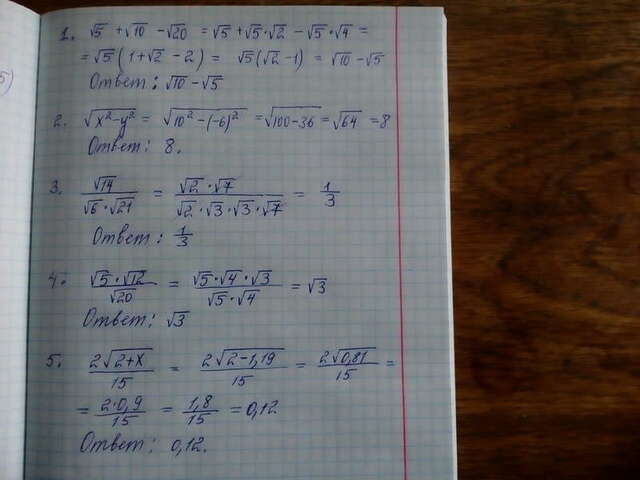 1. √5 + √10 - √20 = √5 + √5·√2 - √5·√4 =
= √5(1+√2 - 2) = √5(√2-1) = √10 - √5
Ответ: √10 - √5
2. √(x²-y²) = √(10²-(-6)²) = √(100-36) = √64 = 8
Ответ: 8.
3. √14/(√6·√21) = (√2·√7)/(√2·√3·√3·√7) = 1/3
Ответ: 1/3
4. (√5·√12)/√20 = (√5·√4·√3)/(√5·√4) = √3
Ответ: √3
5. 2√(2+x)/15 = 2√(2-1,19)/15 = 2√(0,81)/15 =
= 2·0,9/15 = 1,8/15 = 0,12
Ответ: 0,12.